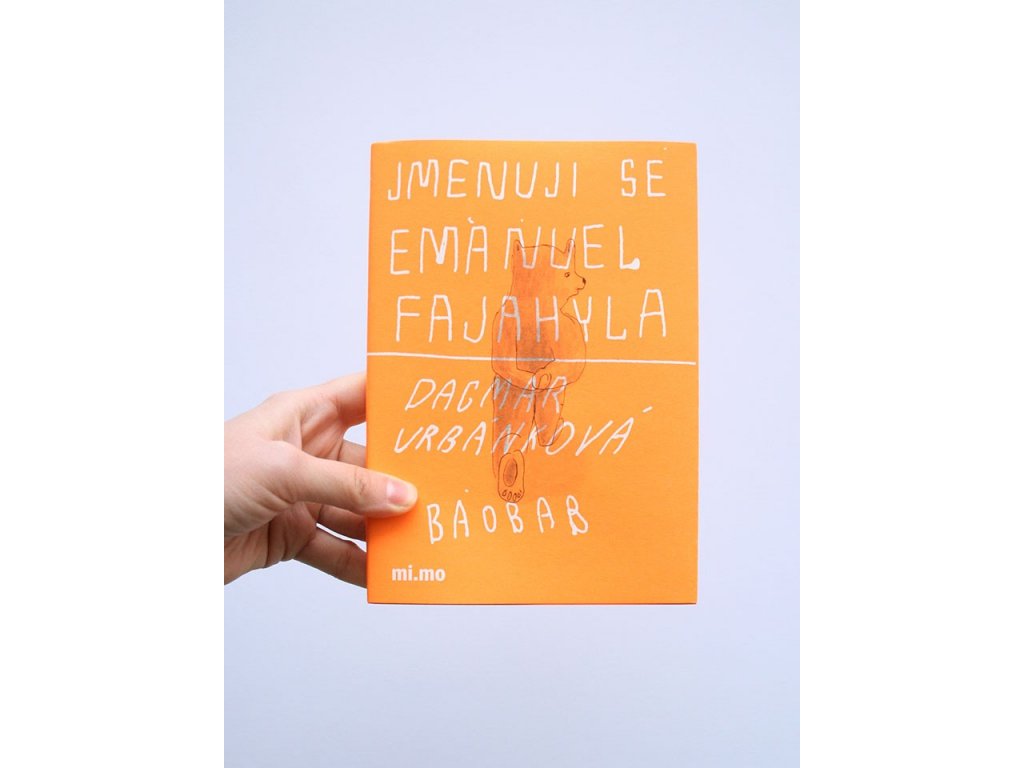 JMENUJI SE
EMANUEL
FAJAHYLA
DAGMAR
URBÁNKOVÁ
BAOBAB
mi.mo